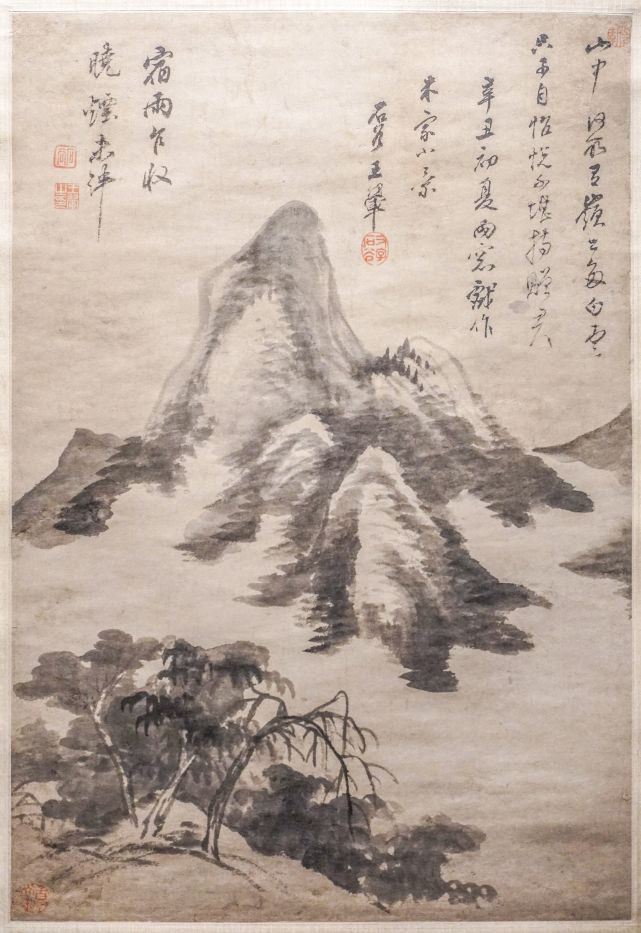 山中何所有嶺上多白雲
只可自怡悅不堪持贈君
辛丑初夏雨窓戲作
米家小景
石谷王翬
宿雨乍收
曉煙未泮
石谷